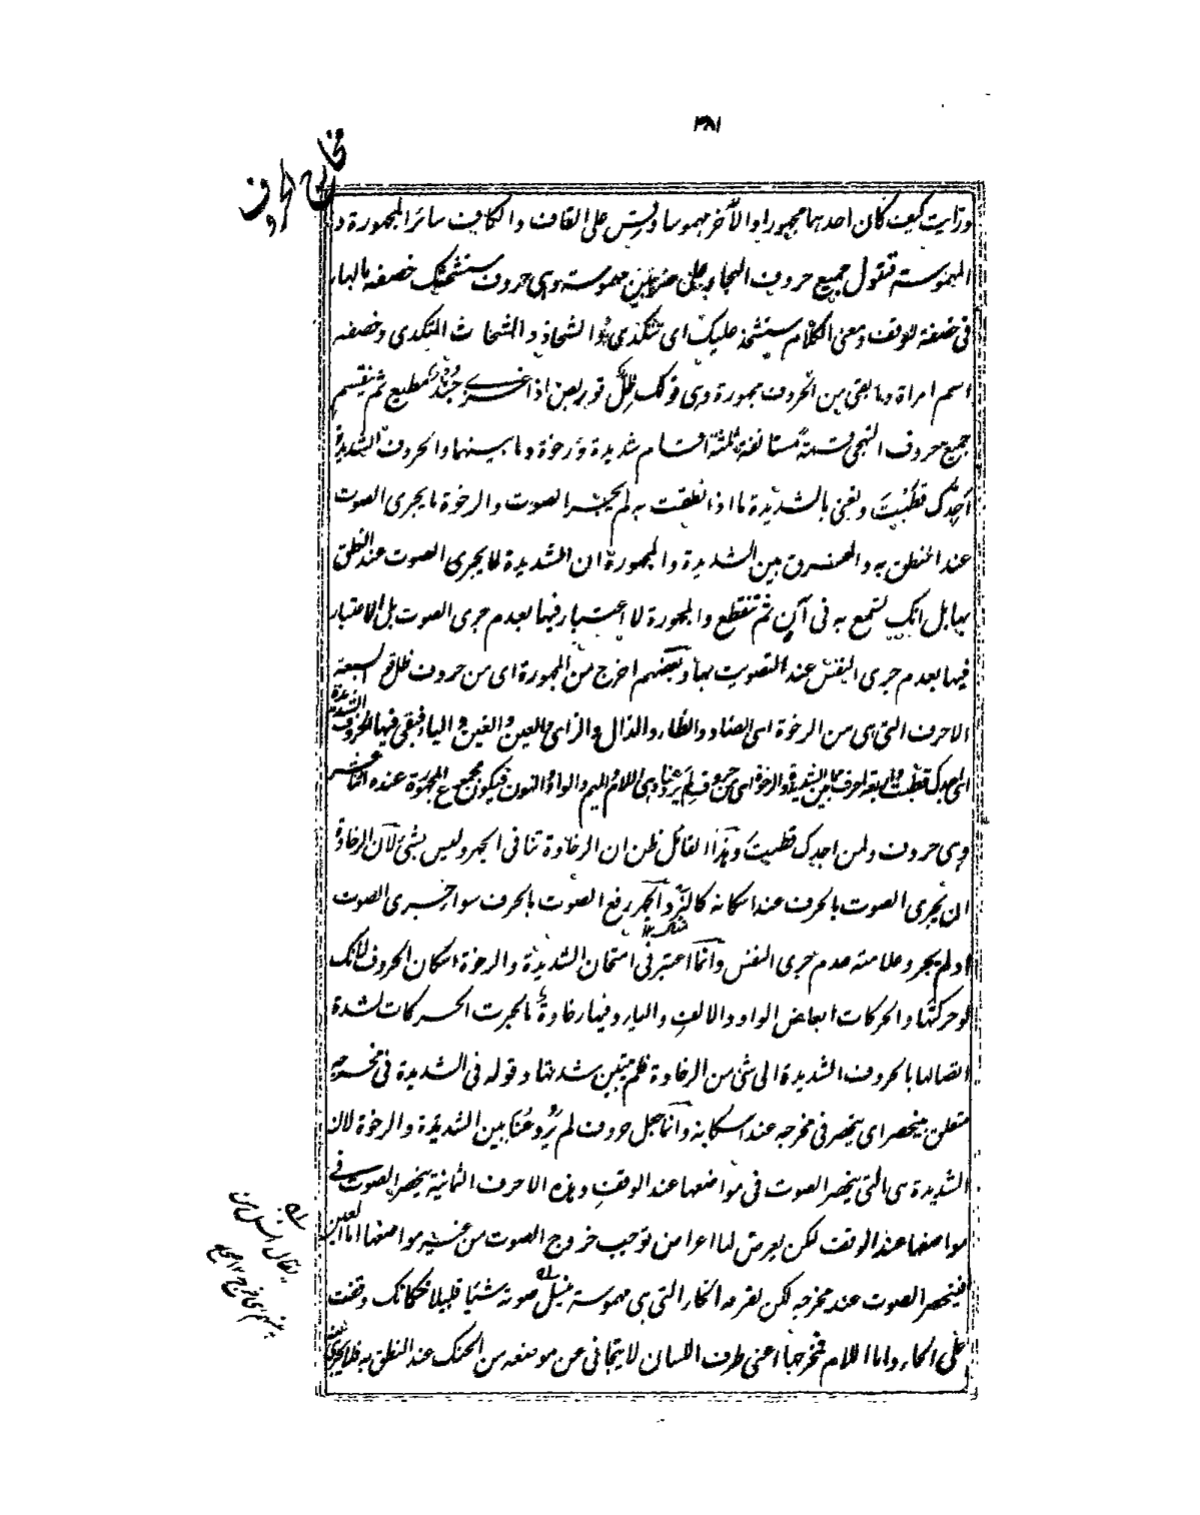 ٣٨١
مخارج الحروف
ورأيت كيف كان احدهما مجهورا والآخر مهموسا وقس على القاف والكاف سائر المجهورة و
المهموسة فنقول جميع حروف الهجاء على ضربين مهموسة وهى حروف ستشحثك خصفه بالهاء
فى خصفة للوقف ومعنى الكلام ستشحذ عليك اى تتكدى والشحاذ والشحاث المتكدى وخصفه
اسم امرأة وما بقى من الحروف مجهورة وهى قولك ظل قو ربض اذا غزى جند مطيع ثم ينقسم
جميع حروف التهجى قسمة مستانفة ثلثة اقسام شديدة ورخوة وما بينهما والحروف الشديدة
اجدك قطبت ونعنى بالشديدة ما اذا نطقت به لم يجر الصوت والرخوة ما يجرى الصوت
عند النطق به والفرق بين الشديدة والمجهورة ان الشديدة لا يجرى الصوت عند النطق
بها بل انك تسمع به فى آن ثم تنقطع والمجهورة لا اعتبار فيها بعدم جرى الصوت بل الاعتبار
فيها بعدم جرى النفس عند التصويت بها وبعضهم اخرج من المجهورة اى من حروف ظل قو السبعة
الاحرف التى هى من الرخوة اى الضاد والظاء والذال والزاى والعين والغين والياء فبقى فيها الحروف الشديدة
اى اجدك قطبت واربعة احرف مما بين الشديدة والرخوة اى من حروف لم يروعنا وهى اللام والميم والواو والنون فيكون مجموع المجهورة عنده اثنا عشر
وهى حروف ولمن اجدك قطبت وهذا القائل ظن ان الرخاوة تنافى الجهر وليس بشئ لان الرخاوة
ان يجرى الصوت بالحرف عند اسكانه كالنز والجهر رفع الصوت بالحرف سواء جرى الصوت
اولم يجر وعلامته عدم جرى النفس وانما اعتبر فى امتحان الشديدة والرخوة اسكان الحروف لانك
لو حركتها والحركات ابعاض الواو والالف والياء وفيها رخاوة ما لجرت الحركات لشدة
اتصالها بالحروف الشديدة الى شئ من الرخاوة فلم يتبين شدتها وقوله فى الشديدة فى مخرجه
متعلق بينحصر اى ينحصر فى مخرجه عند اسكانه وانما جعل حروف لم يروعنا بين الشديدة والرخوة لان
الشديدة هى التى ينحصر الصوت فى مواضعها عند الوقف وهذه الاحرف الثمانية ينحصر الصوت فى
مواضعها عند الوقف لكن يعرض لها اعراض توجب خروج الصوت من غير مواضعها اما العين
فينحصر الصوت عند مخرجه لكن لقربه الحاء التى هى مهموسة ينسل صوته شيئا قليلا فكانك وقفت
على الحاء واما اللام فمخرجها اعنى طرف اللسان لا يتجافى عن موضعه من الحنك عند النطق به فلا يجرى
له
يقال انسل من
بينهم اى خرج ١٢ مجمع